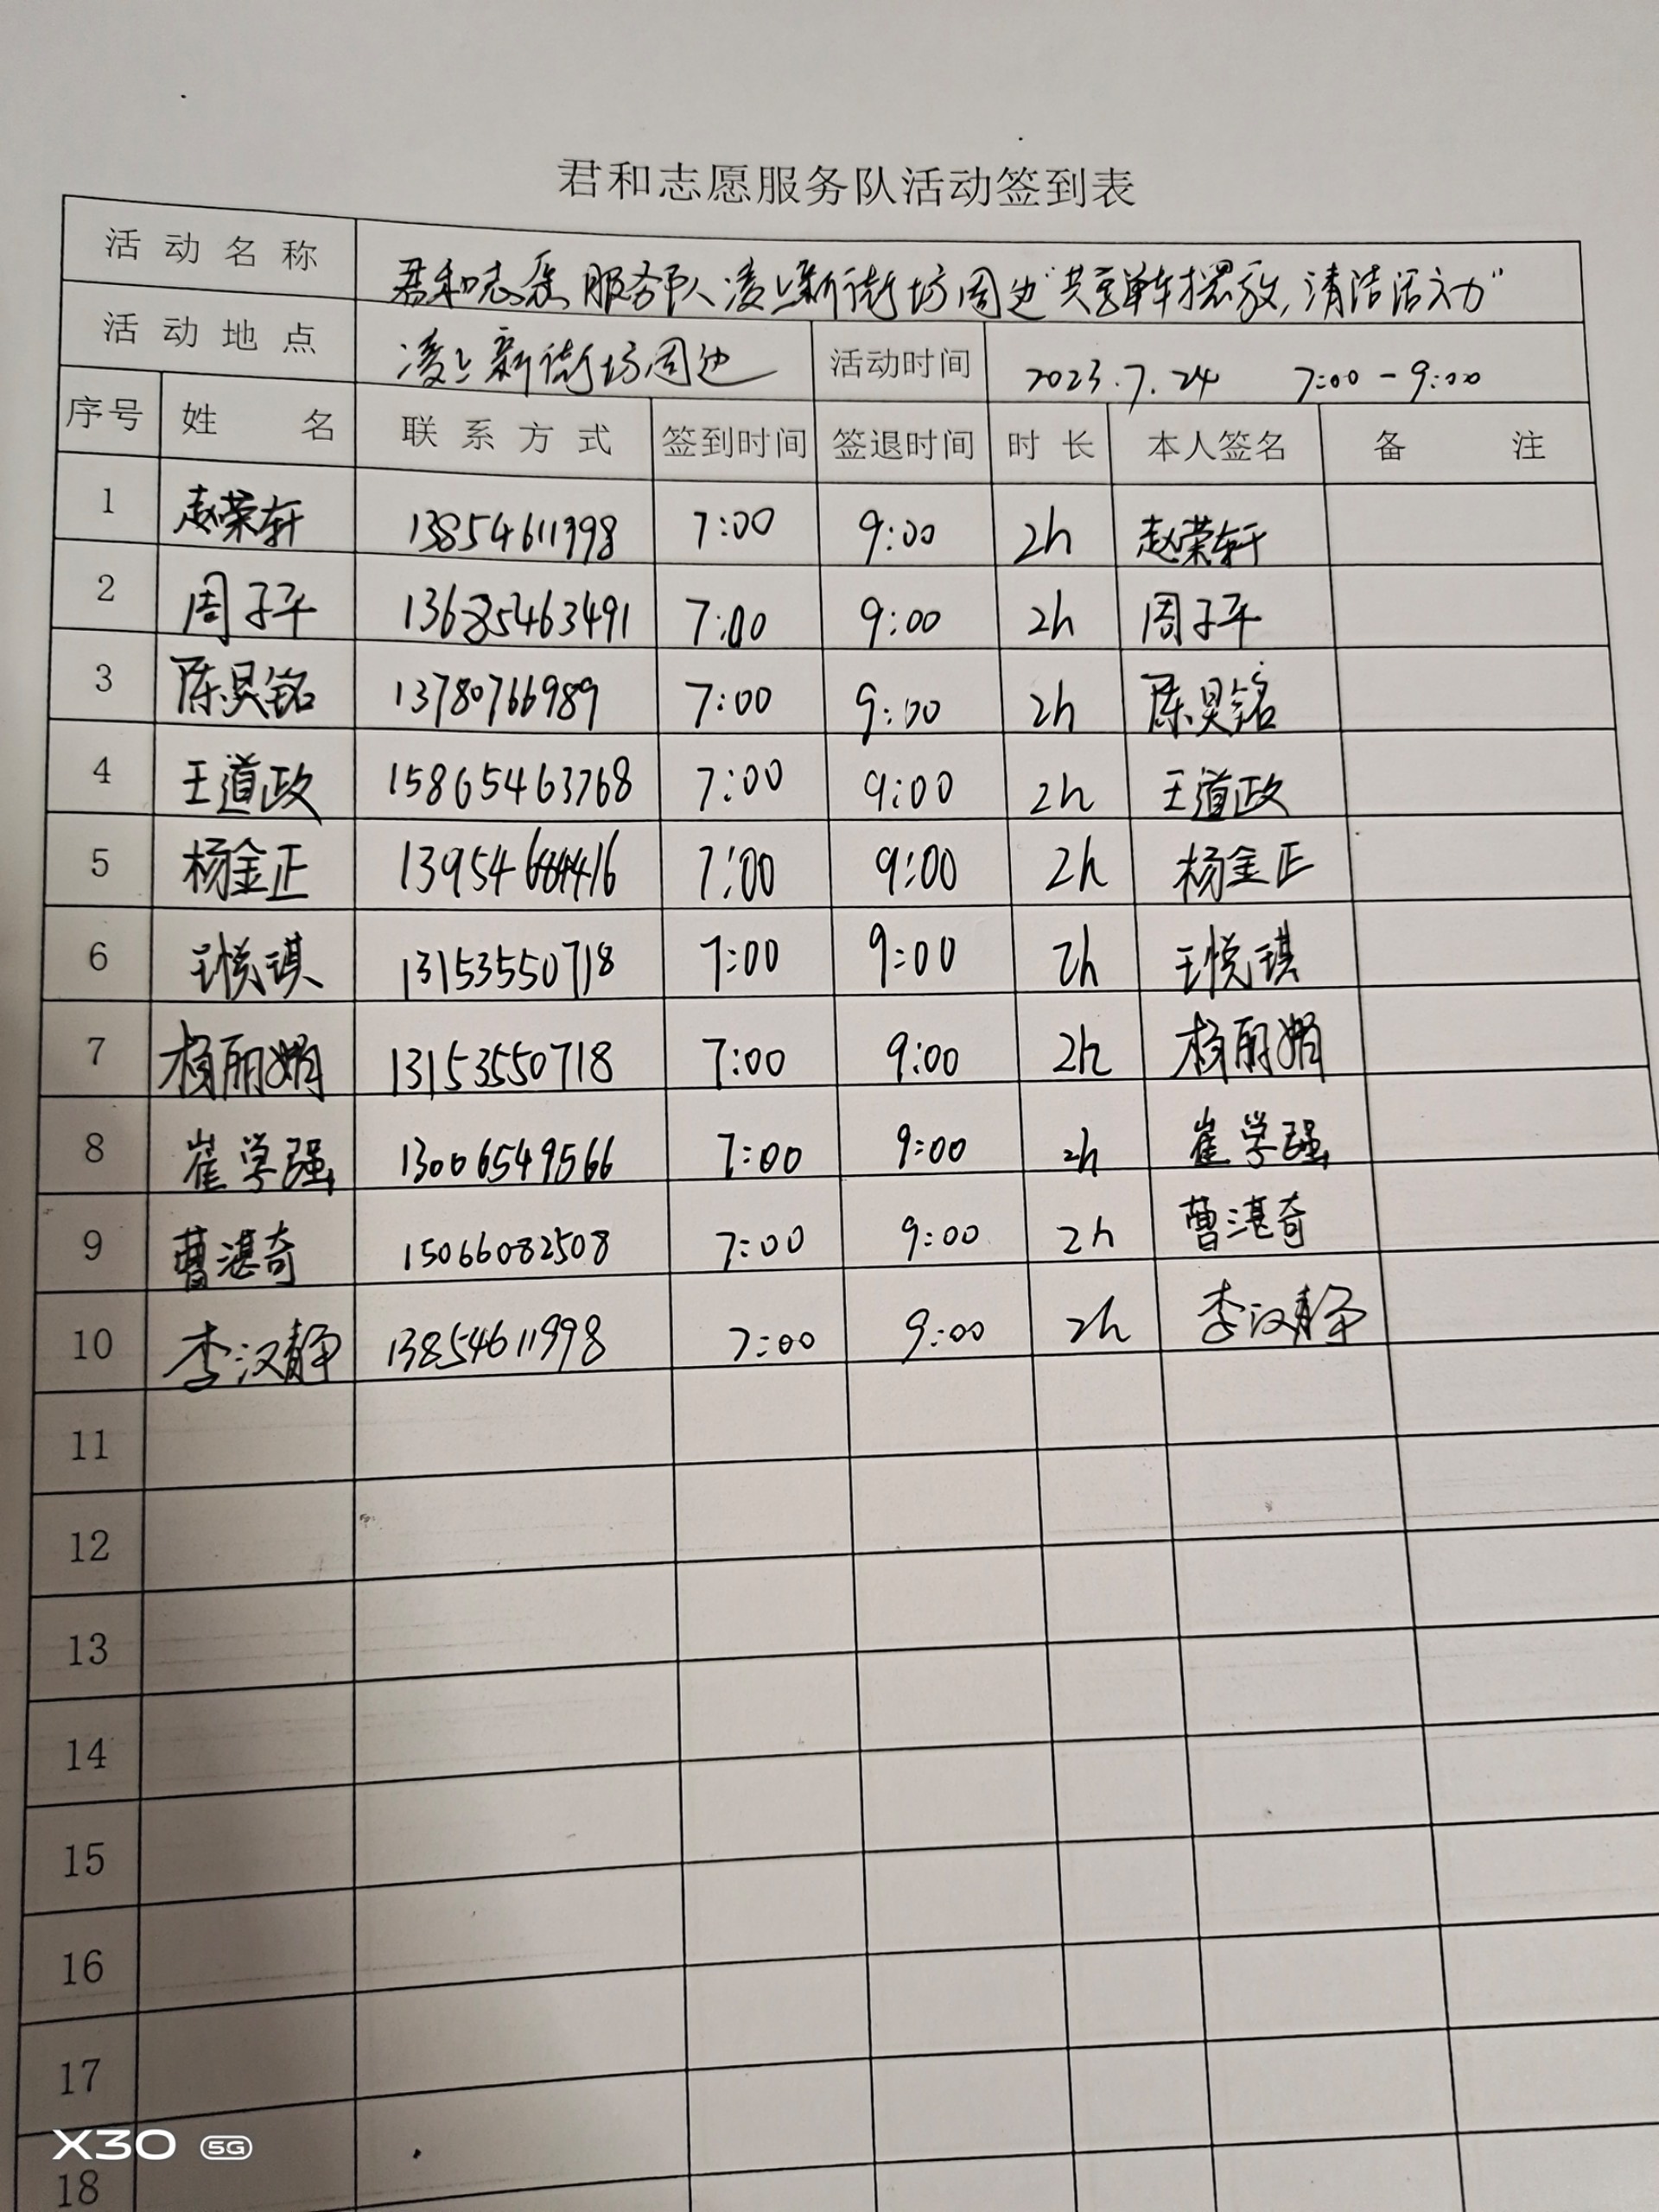 君和志愿服务队活动签到表
活动名称 君和志愿服务队凌上新街坊周边"共享单车摆放,清洁活动"
活动地点 凌上新街坊周边 活动时间 2023.7.24 7:00-9:00
序号 姓名 联系方式 签到时间 签退时间 时长 本人签名 备注
1 赵荣轩 13854611998 7:00 9:00 2h 赵荣轩
2 周子平 13685463491 7:00 9:00 2h 周子平
3 陈昊铭 13780766989 7:00 9:00 2h 陈昊铭
4 王道政 15865463768 7:00 9:00 2h 王道政
5 杨金正 7:00 9:00 2h 杨金正
6 王悦琪 13153550718 7:00 9:00 2h 王悦琪
7 杨丽娟 13153550718 7:00 9:00 2h 杨丽娟
8 崔学强 13006549566 7:00 9:00 2h 崔学强
9 曹湛奇 15066082508 7:00 9:00 2h 曹湛奇
10 李汉静 13854611998 7:00 9:00 2h 李汉静
11
12
13
14
15
16
17
18
X30 5G